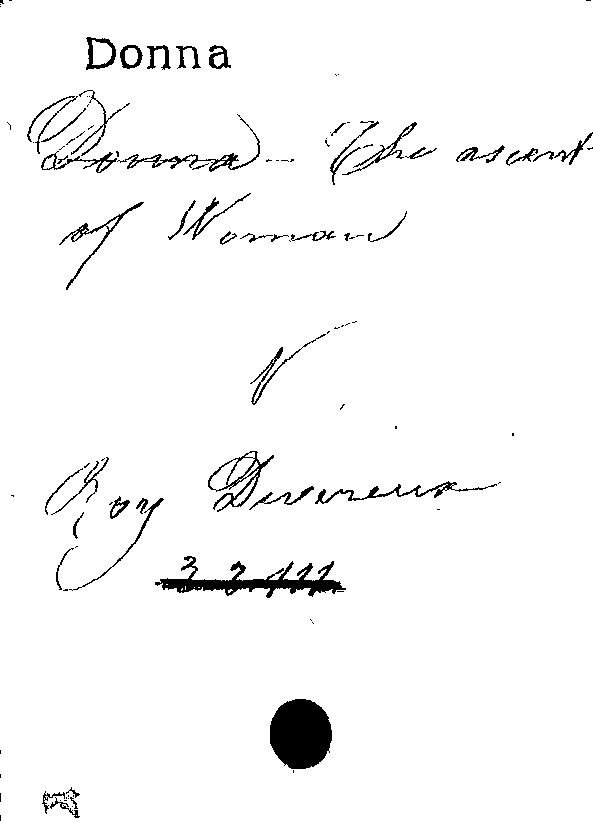 Donna
Donna - The ascent
of Woman
v
Roy Devereux